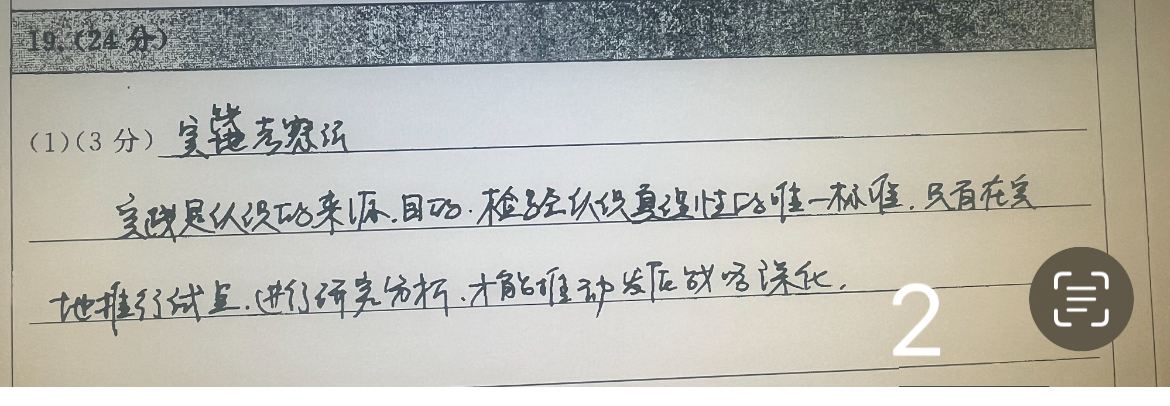 19.(24分)
(1)(3分) 实践考察法
实践是认识的来源、目的、检验认识真理性的唯一标准。只有在实
地推行试点,进行研究分析,才能推动发展战略深化。
2